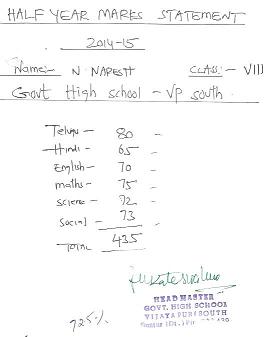 HALF YEAR MARKS STATEMENT
2014-15
Name:- N NARESH CLASS:- VIII
Govt High school - VP south
Telugu - 80 -
Hindi - 65 -
English - 70 -
maths - 75 -
science - 72 -
Social - 73 -
TOTAL 435
HEAD MASTER
GOVT. HIGH SCHOOL
VIJAYAPURI SOUTH
725%